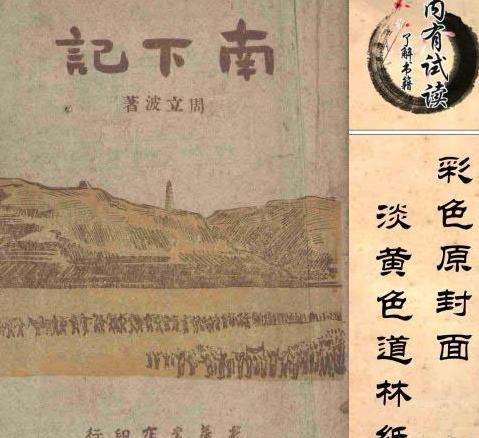 南下記
周立波著
新華書店印行
内有试读
了解书籍
彩色原封面
淡黄色道林纸